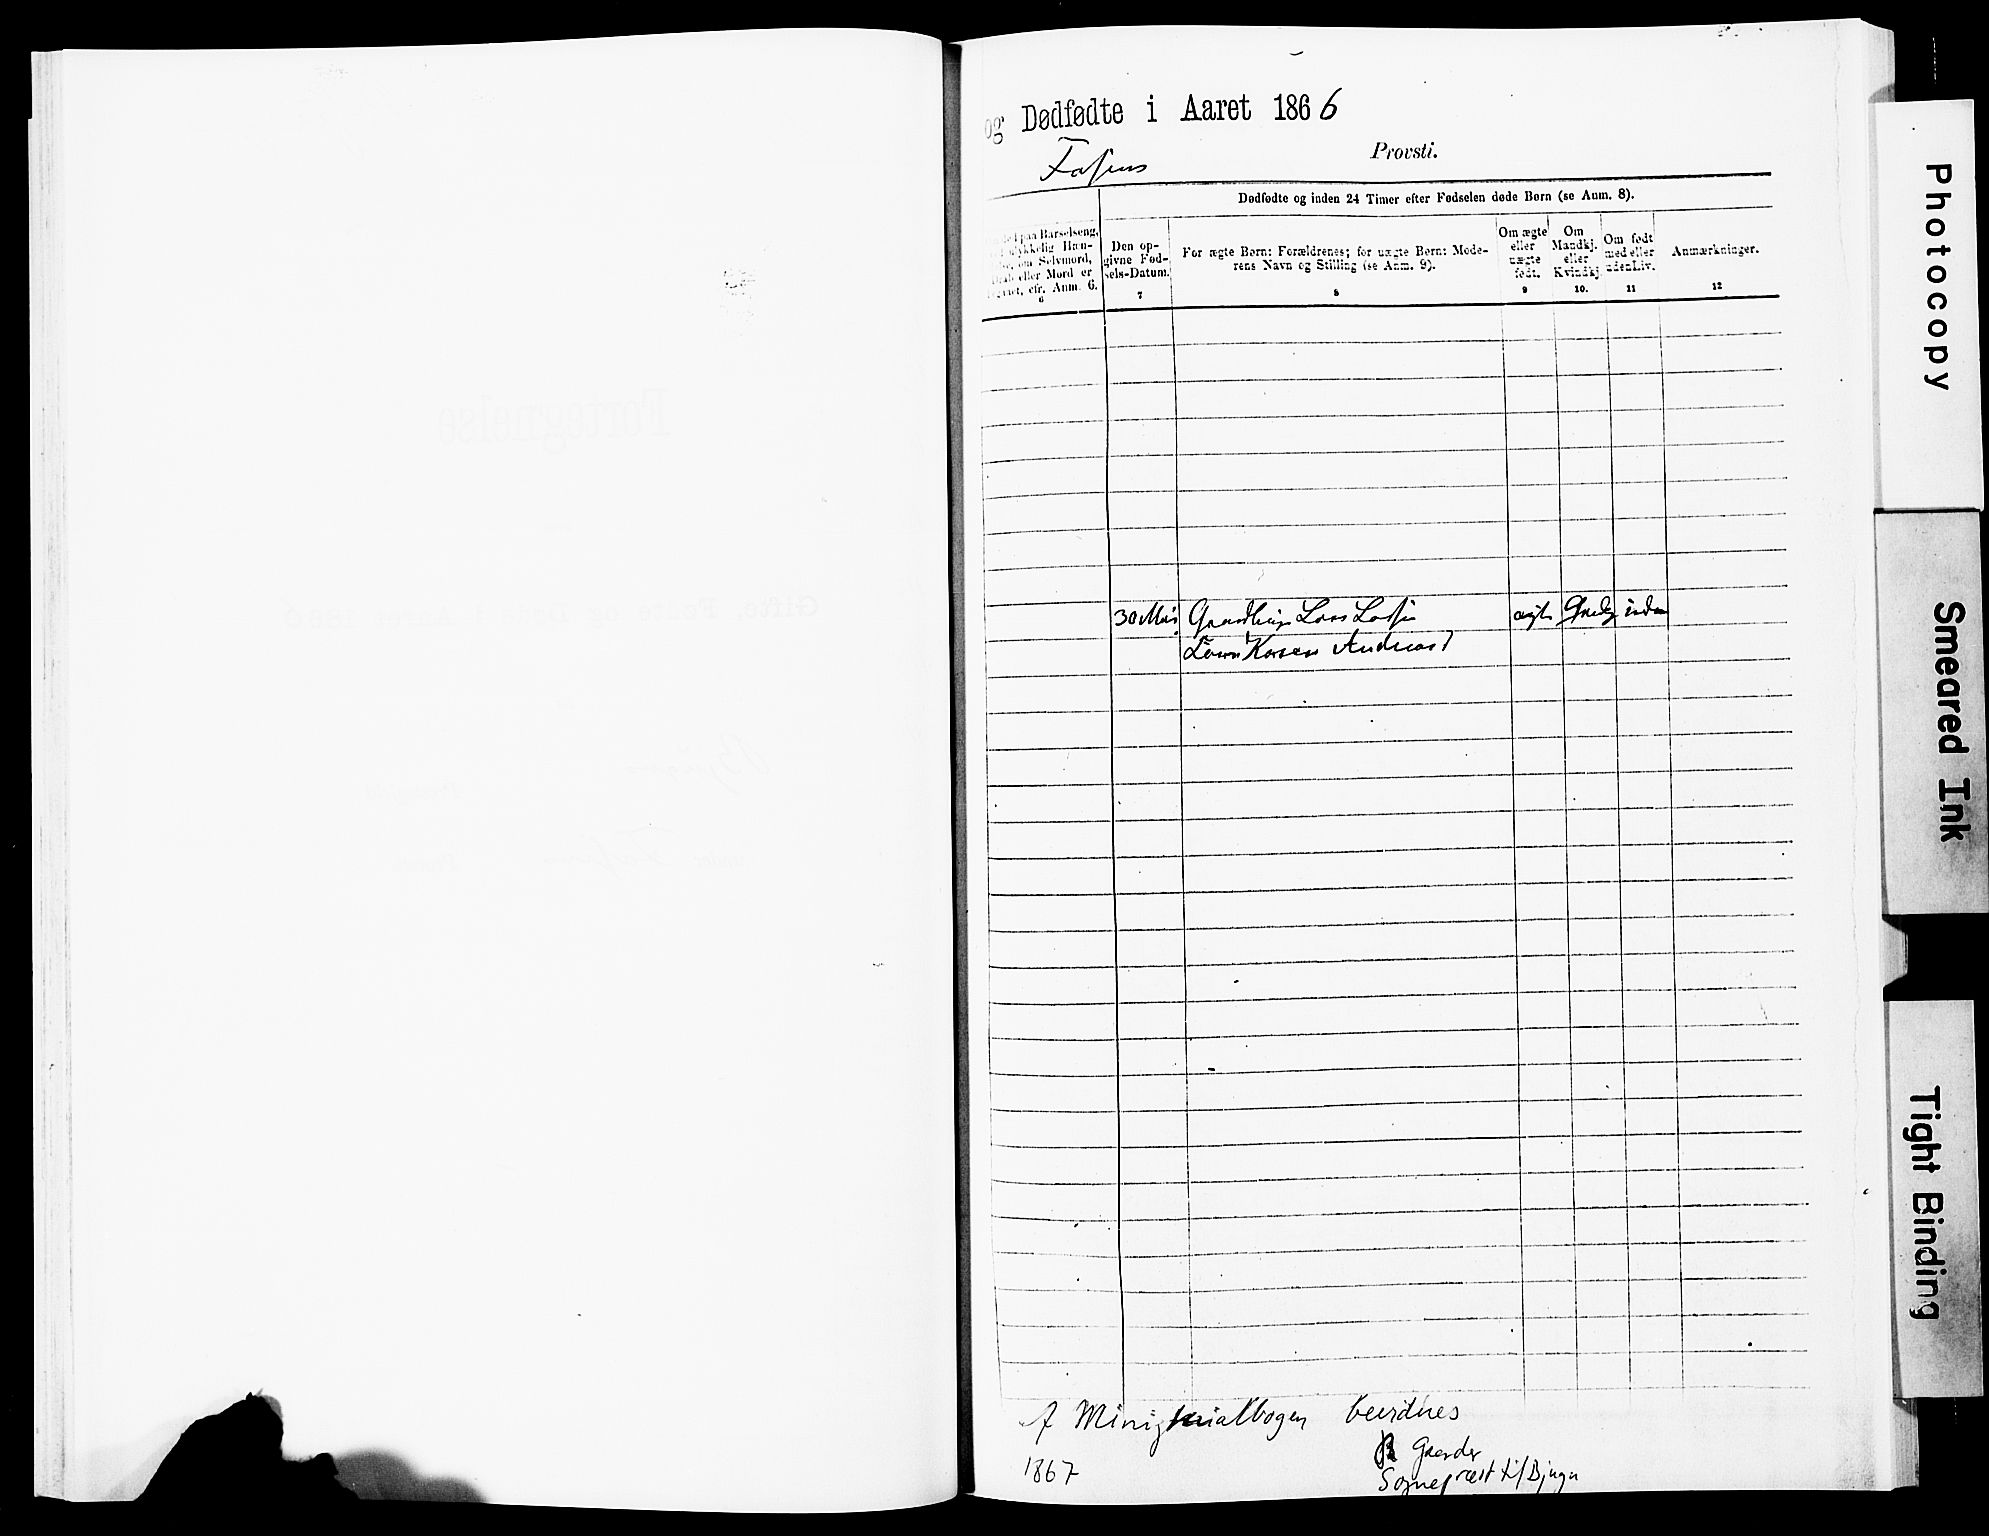 og Dødfødte i Aaret 1866
Fosens Provsti.
Dødfødte og inden 24 Timer efter Fødselen døde Børn (se Anm. 8).
paa Barselseng,
ykkelig Hæn-
om Selvmord,
eller Mord er
cfr. Anm. 6.
6
Den op-
givne Fød-
sels-Datum.
7
For ægte Børn: Forældrenes; for uægte Børn: Mode-
rens Navn og Stilling (se Anm. 9).
8
Om ægte
eller
uægte
født.
9
Om
Mandkj.
eller
Kvindkj.
10.
Om født
med eller
uden Liv.
11
Anmærkninger.
12
30 Mai Lars ægte uden
Karen Andreasd
Af Ministerialbogen
1867
Gaarder
Sognepræst til Bjugn
Fortegnelse
Gifte, Fødte og Døde i Aaret 1866
Bjugns
Præstegjeld
under Fosens Provsti
Photocopy
Smeared Ink
Tight Binding